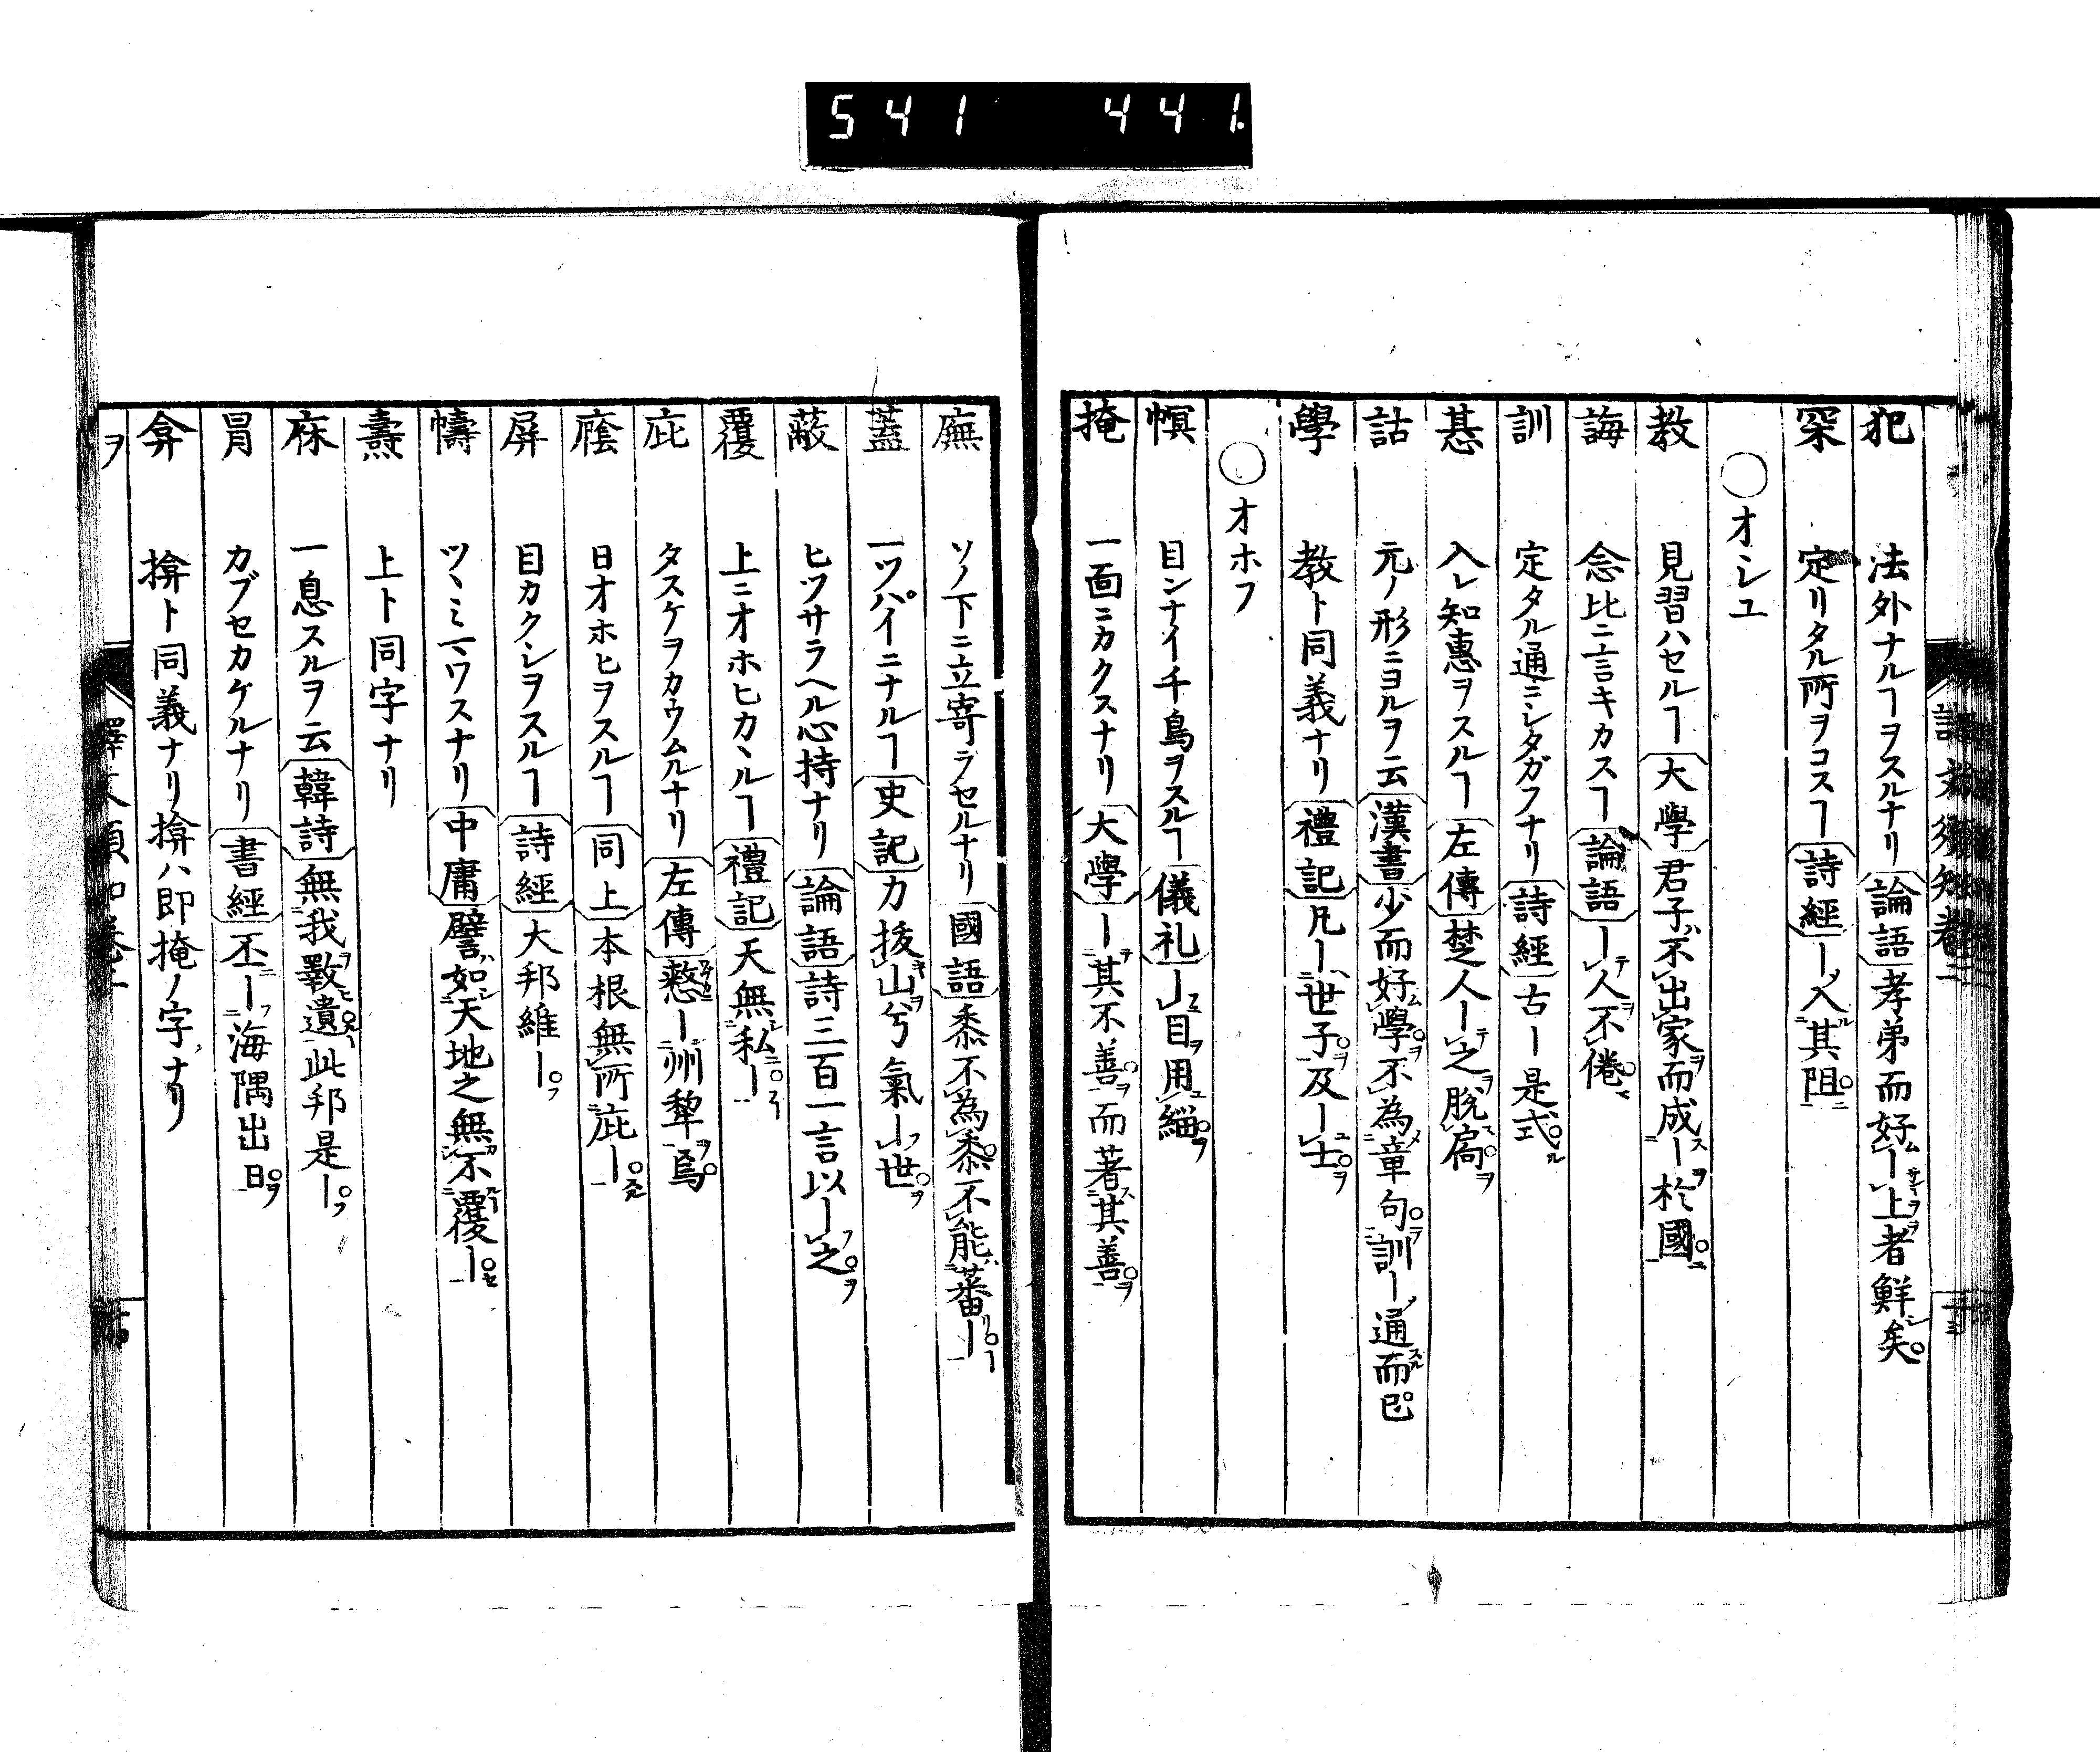 541 441
犯 法外ナルヿヲスルナリ 論語 孝弟而好ムー上ヲ者鮮シ矣
罙 定リタル所ヲコスヿ 詩經 ー入其阻ニ
○オシユ
教 見習ハセルヿ 大學 君子不出家ヲ而成スーヲ於國ニ
誨 念比ニ言キカスヿ 論語 ーテ人ヲ不倦
訓 定タル通ニシタガフナリ 詩經 古ー是式ル
惎 入レ知惠ヲスルヿ 左傳 楚人ーテ之ヲ脱ス扃ヲ
詁 元ノ形ニヨルヲ云 漢書 少而好ム學ヲ不為メ章句ヲ訓ー通スル而已
學 教ト同義ナリ 禮記 凡ー世子ヲ及ー士ヲ
○オホフ
幎 目ンナイ千鳥ヲスルヿ 儀礼 ー目ヲ用ユ緇ヲ
掩 一面ニカクスナリ 大學 ーテ其不善ヲ而著ス其善ヲ
廡 ソノ下ニ立寄ラセルナリ 國語 黍不為黍不能蕃ー
蓋 一ツパイニナルヿ 史記 力拔キ山ヲ兮氣ーフ世ヲ
蔽 ヒツサラヘル心持ナリ 論語 詩三百一言以ーフ之ヲ
覆 上ニオホヒカヽルヿ 禮記 天無シ私ニー
庇 タスケヲカウムルナリ 左傳 憖ー州犂ヲ焉
廕 日オホヒヲスルヿ 同上 本根無所庇ー
屏 目カクシヲスルヿ 詩經 大邦維ーフ
幬 ツヽミマワスナリ 中庸 譬ハ如シ天地之無不覆ー
燾 上ト同字ナリ
庥 一息スルヲ云 韓詩 無我ヲ斁遺此邦是ーフ
冒 カブセカケルナリ 書經 丕ニーフ海隅出日ヲ
弇 揜ト同義ナリ揜ハ即掩ノ字ナリ
ヲ